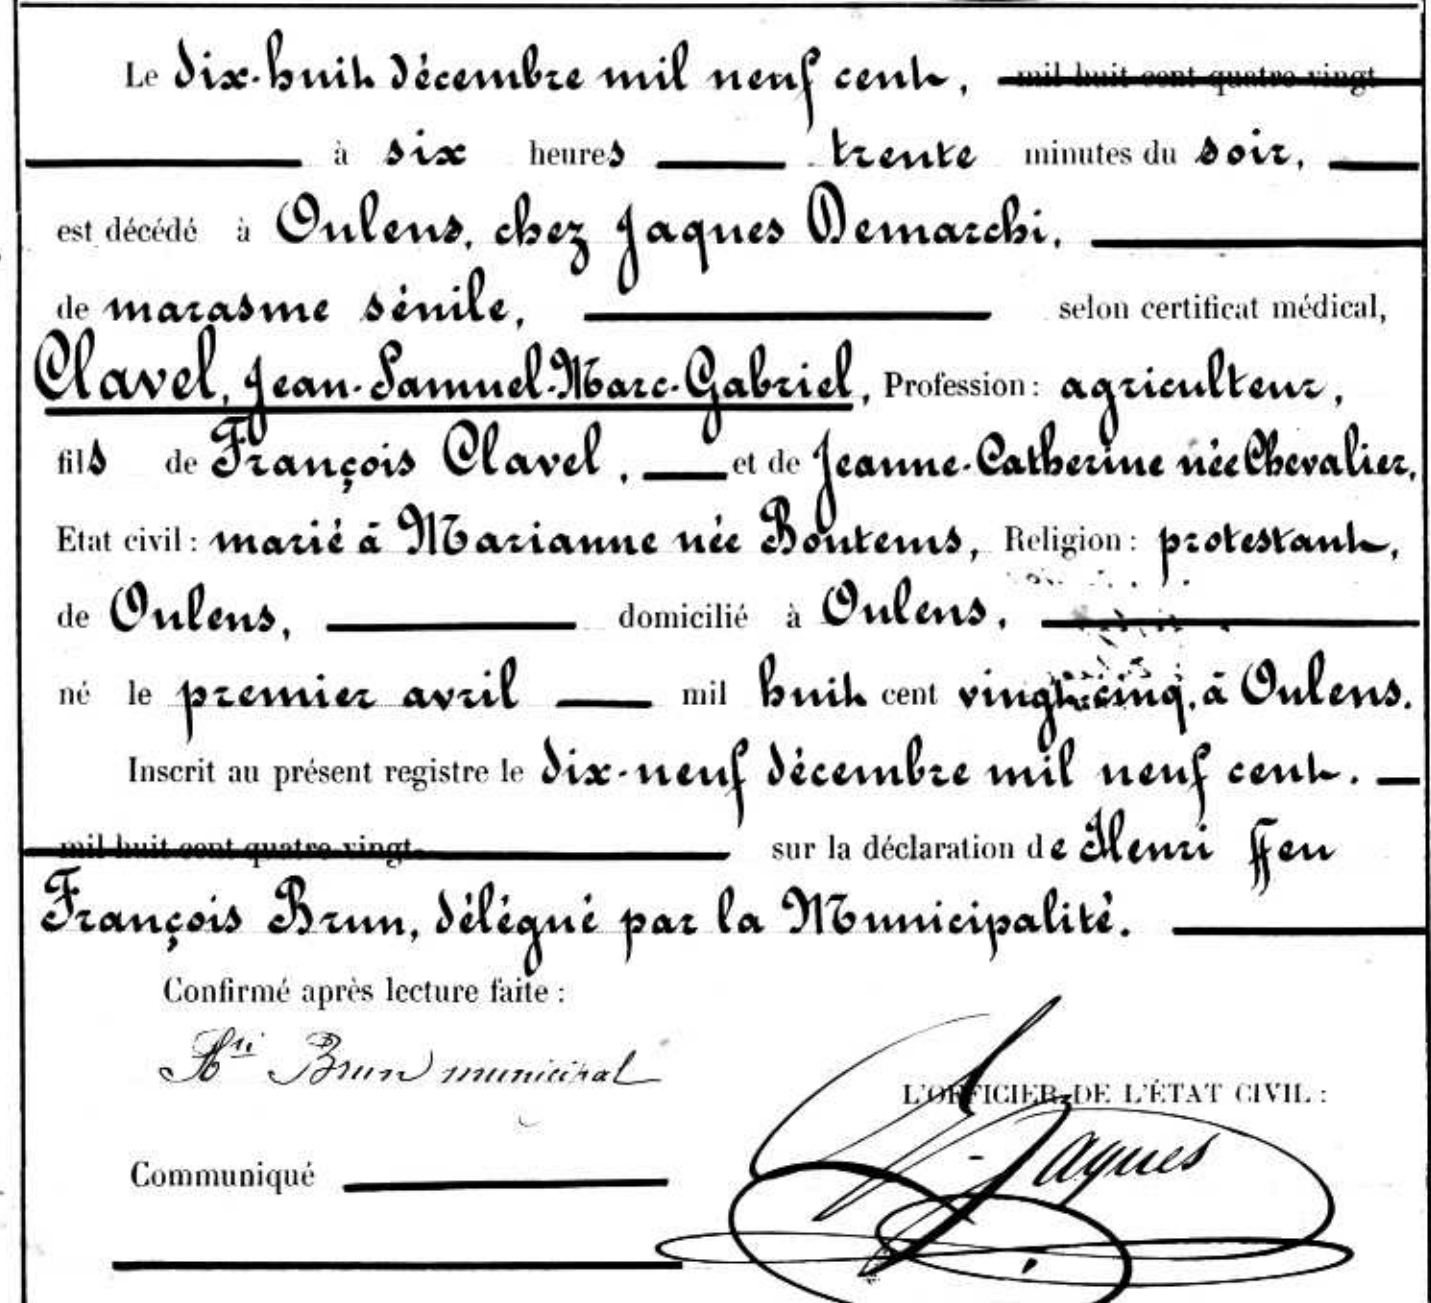 Le dix-huit décembre mil neuf cent, mil huit cent quatre vingt
à six heures trente minutes du soir,
est décédé à Oulens, chez Jaques Demarchi,
de marasme sénile, selon certificat médical,
Clavel, Jean-Samuel-Marc-Gabriel, Profession: agriculteur,
fils de François Clavel, et de Jeanne-Catherine née Chevalier,
Etat civil: marié à Marianne née Boutems, Religion: protestant,
de Oulens, domicilié à Oulens,
né le premier avril mil huit cent vingt-cinq, à Oulens.
Inscrit au présent registre le dix-neuf décembre mil neuf cent.
mil huit cent quatre vingt- sur la déclaration de Henri ffeu
François Brun, délégué par la Municipalité.
Confirmé après lecture faite:
Hri Brun municipal
L'OFFICIER DE L'ÉTAT CIVIL:
Communiqué Jaques